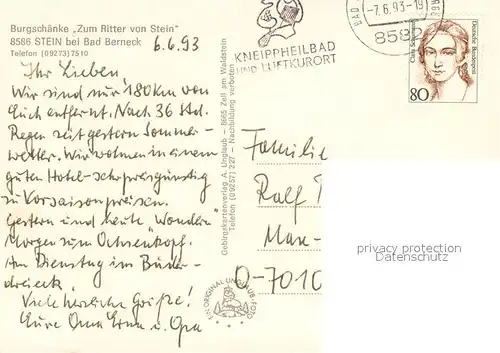 Burgschänke „Zum Ritter von Stein"
8586 STEIN bei Bad Berneck
Telefon (09273) 7510
6.6.93
Ihr Lieben,
Wir sind nur 180 km von
Euch entfernt. Nach 36 Std.
Regen seit gestern Sommer-
wetter. Wir wohnen in einem
guten Hotel - sehr preisgünstig
zu Vorsaisonpreisen.
Gestern und heute Wandern
Morgen zum Ochsenkopf.
Am Dienstag im
dreieck.
Viele herzliche Grüße!
Eure Oma Erna u. Opa
Gebirgskartenverlag A. Unglaub - 8665 Zell am Waldstein
Telefon (09257) 227 - Nachbildung verboten
EIN ORIGINAL UNGLAUB-FOTO
KNEIPPHEILBAD
UND LUFTKURORT
BAD
-7.6.93-19
8582
Deutsche Bundespost
80
Familie
Ralf
Max-
D-7010
privacy protection
Datenschutz